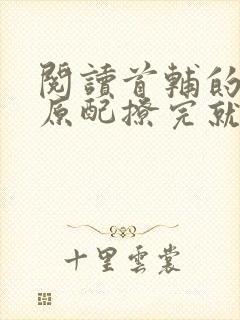 閱讀首輔的
原配撩完就
十里雲裳